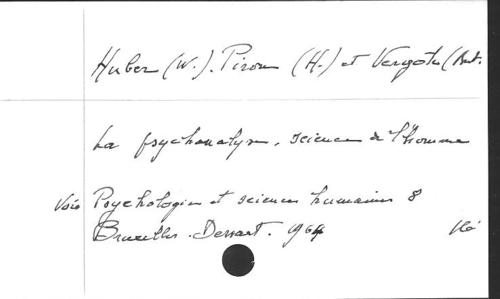 Huber (W.). Piron (H.) et Vergote (Ant.
La psychanalyse, science de l'homme
Voir Psychologie et sciences humaines 8
Bruxelles. Dessart. 1964